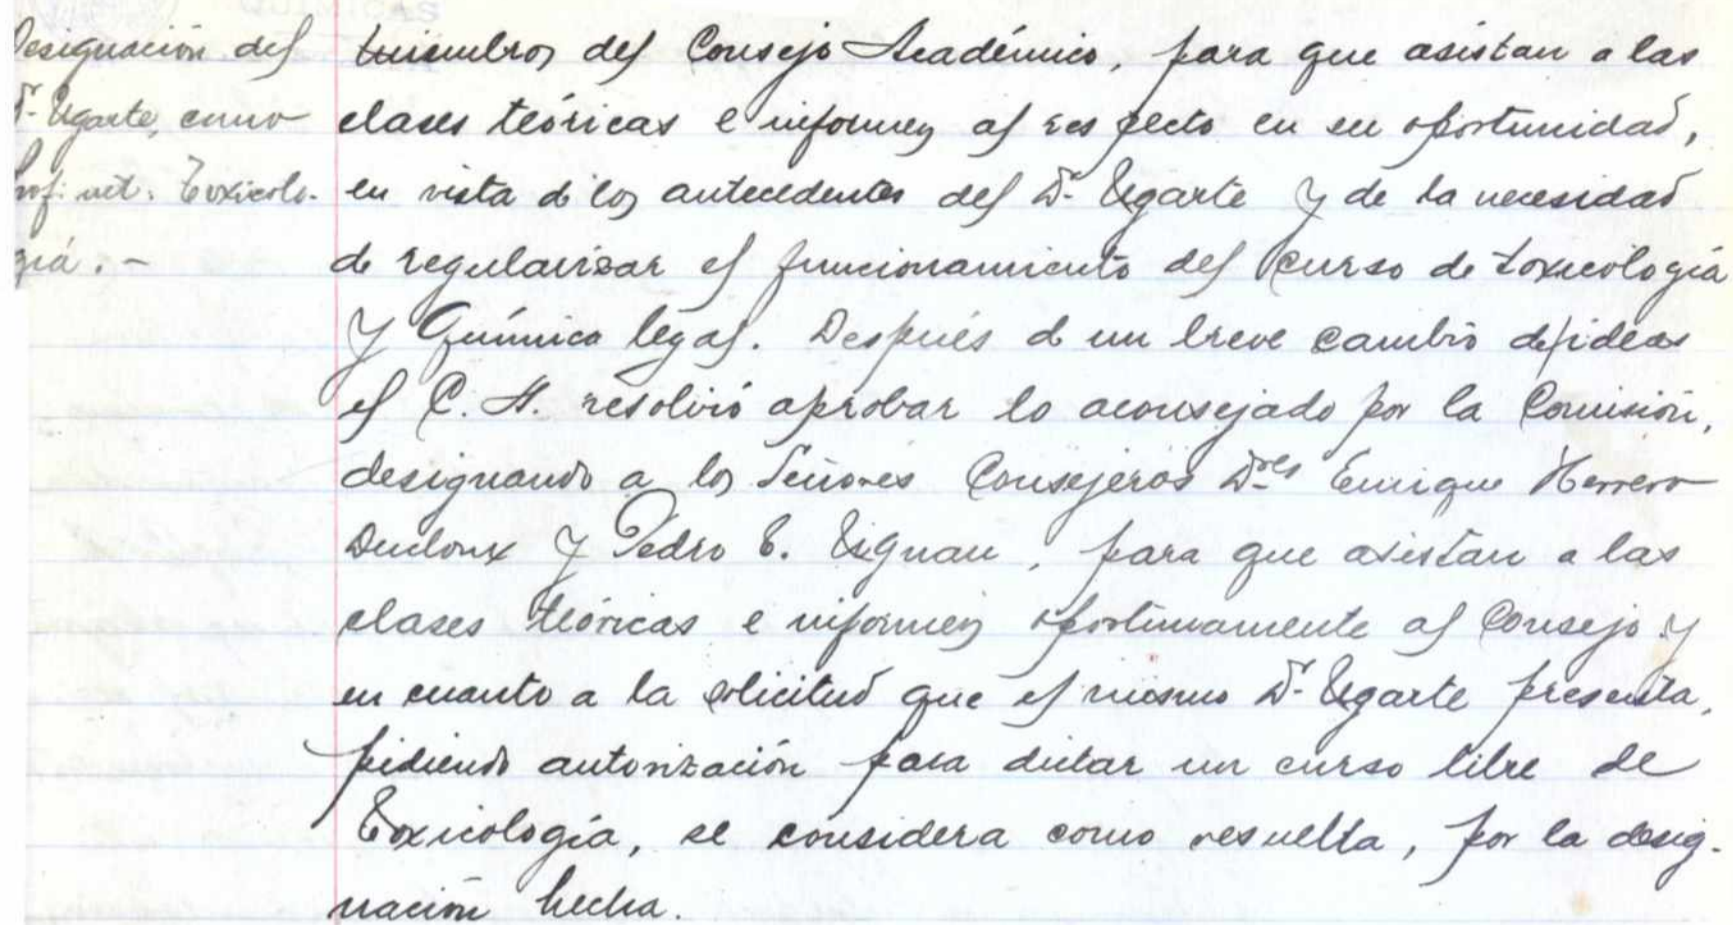 Designación del
Dr. Ugarte, como
Prof. int. Toxicolo-
gía. -
miembros del Consejo Académico, para que asistan a las
clases teóricas e informen al respecto en su oportunidad,
en vista de los antecedentes del Dr. Ugarte y de la necesidad
de regularizar el funcionamiento del curso de toxicología
y Química legal. Después de un breve cambio de ideas
el C. A. resolvió aprobar lo aconsejado por la Comisión,
designando a los Señores Consejeros Dres Enrique Herrero
Ducloux y Pedro T. Vignau, para que asistan a las
clases teóricas e informen oportunamente al Consejo y
en cuanto a la solicitud que el mismo Dr. Ugarte presenta,
pidiendo autorización para dictar un curso libre de
Toxicología, se considera como resuelta, por la desig-
nación hecha.